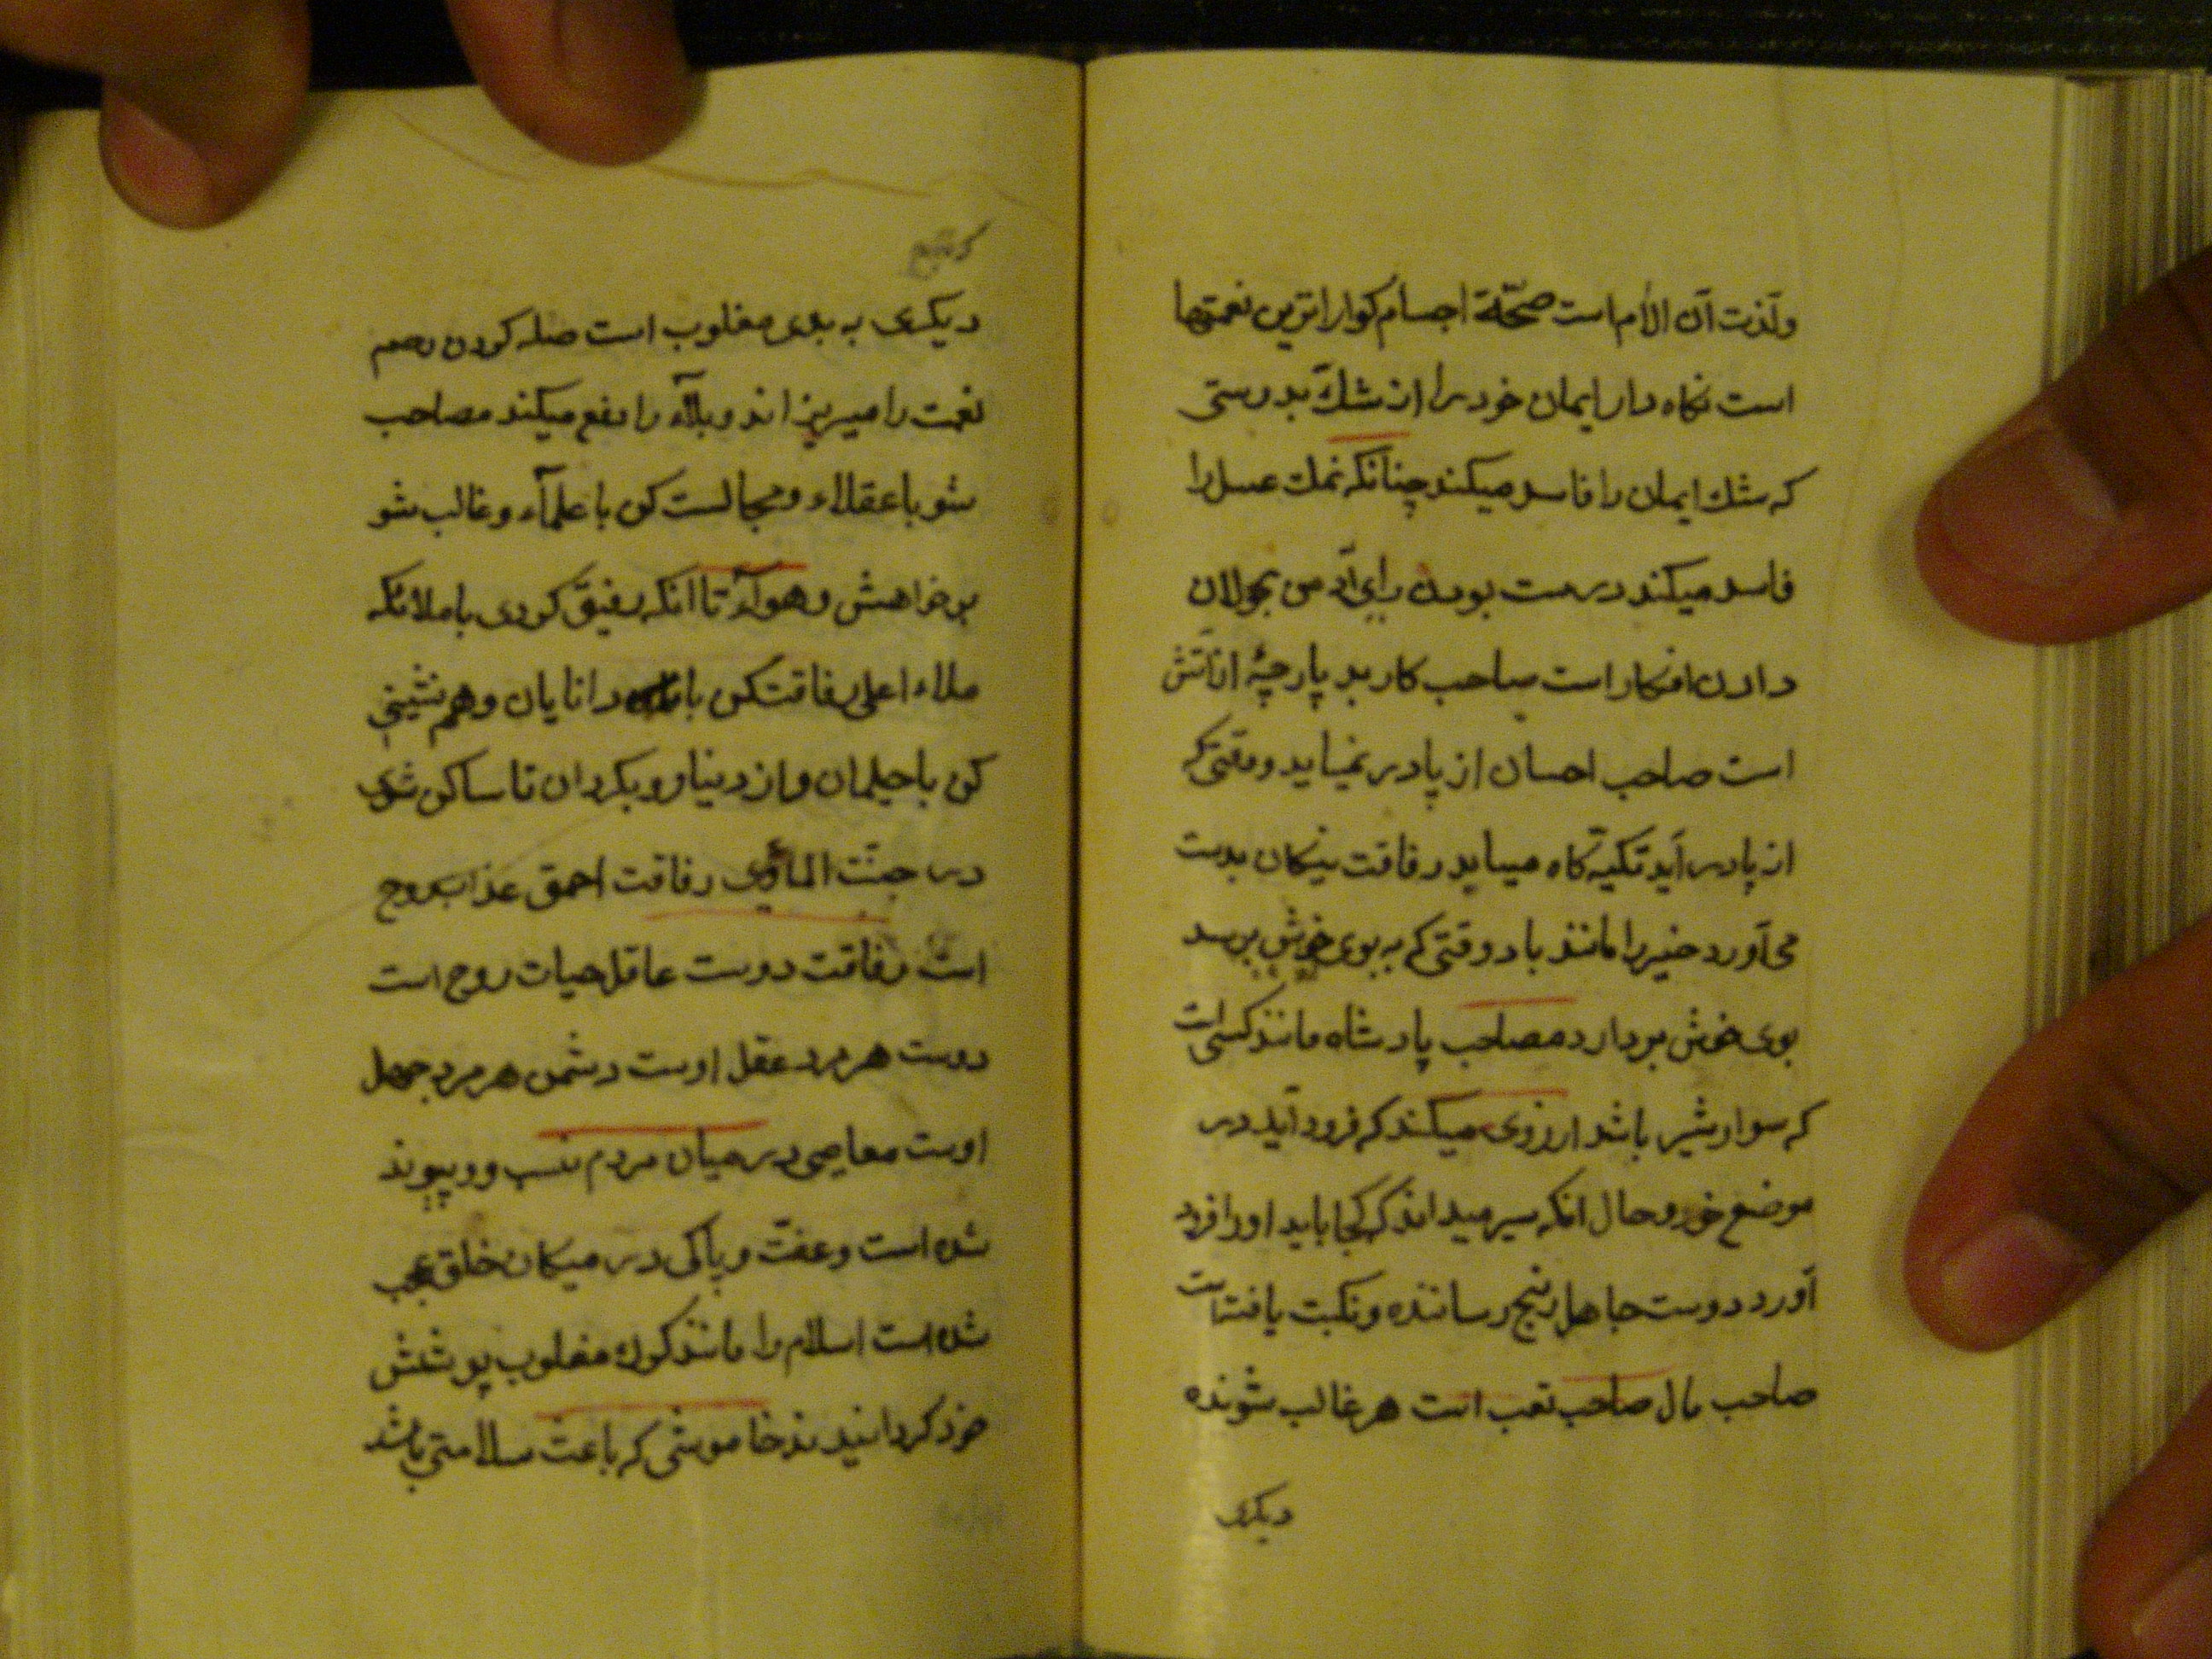 ولذت آن الام است صحّة اجسام کواراترین نعمتها
است نکاه دار ایمان خود را از شك بدرستی
که شك ایمان را فاسد میکند چنانکه نمك عسل را
فاسد میکند درست بودن رای آدمی بجولان
دادن افکار است صاحب کار بد پارچۀ از آتش
است صاحب احسان از پا در نمیاید و وقتی که
از پا در آید تکیه کاه مییابد رفاقت نیکان بدست
می آورد خیر را مانند باد وقتی که به بوی خوش برسد
بوی خوش بردارد مصاحب پادشاه مانند کسی است
که سوار شیر باشد ارزوی میکند که فرود آید در
موضع خود و حال انکه سیر میداند که کجا باید او را فرود
آورد دوست جاهل رنج رساننده و نکبت یافته است
صاحب مال صاحب تعب است هر غالب شونده
دیکری
دیکری به بدی مغلوب است صله کردن رحم
نعمت را میریزاند و بلاء را دفع میکند مصاحب
شو با عقلاء و مجالست کن با علمآء و غالب شو
بر خواهش و هوآء تا انکه رفیق کردی با ملائکه
ملاء اعلی رفاقت کن با دانایان و هم نشینی
کن با حیلمان و از دنیا رو بکردان تا ساکن شوی
در جنّت المأوی رفاقت احمق عذاب روح
است رفاقت دوست عاقل حیات روح است
دوست هر مرد عقل اوست دشمن هر مرد جهل
اوست معاصی در میان مردم نسب و پیوند
شده است و عفّت و پاکی در میان خلق عجب
شده است اسلام را مانند کول مغلوب پوشش
خود کردانیدند خاموشی که باعث سلامتی باشد